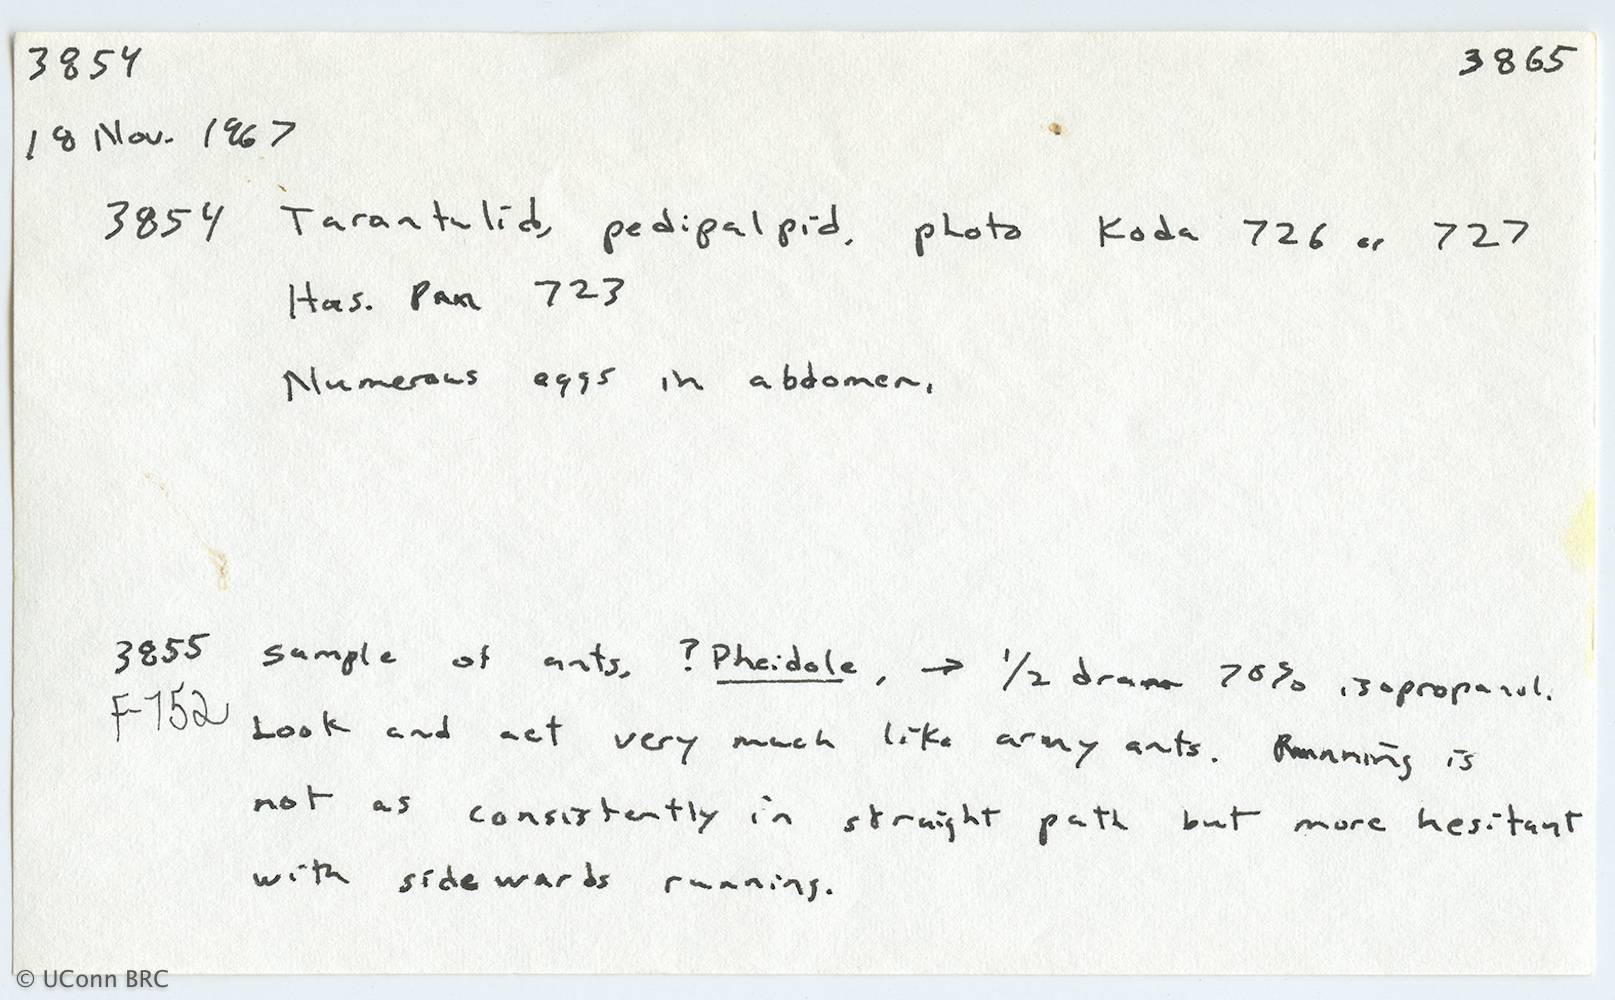 3854 3865
18 Nov. 1967
3854 Tarantulid, pedipalpid, photo Koda 726 or 727
Has. Pan 723
Numerous eggs in abdomen.
3855 Sample of ants, ? Pheidole, → 1/2 dram 70% isopropanol.
F-752 Look and act very much like army ants. Running is
not as consistently in straight path but more hesitant
with sidewards running.
© UConn BRC